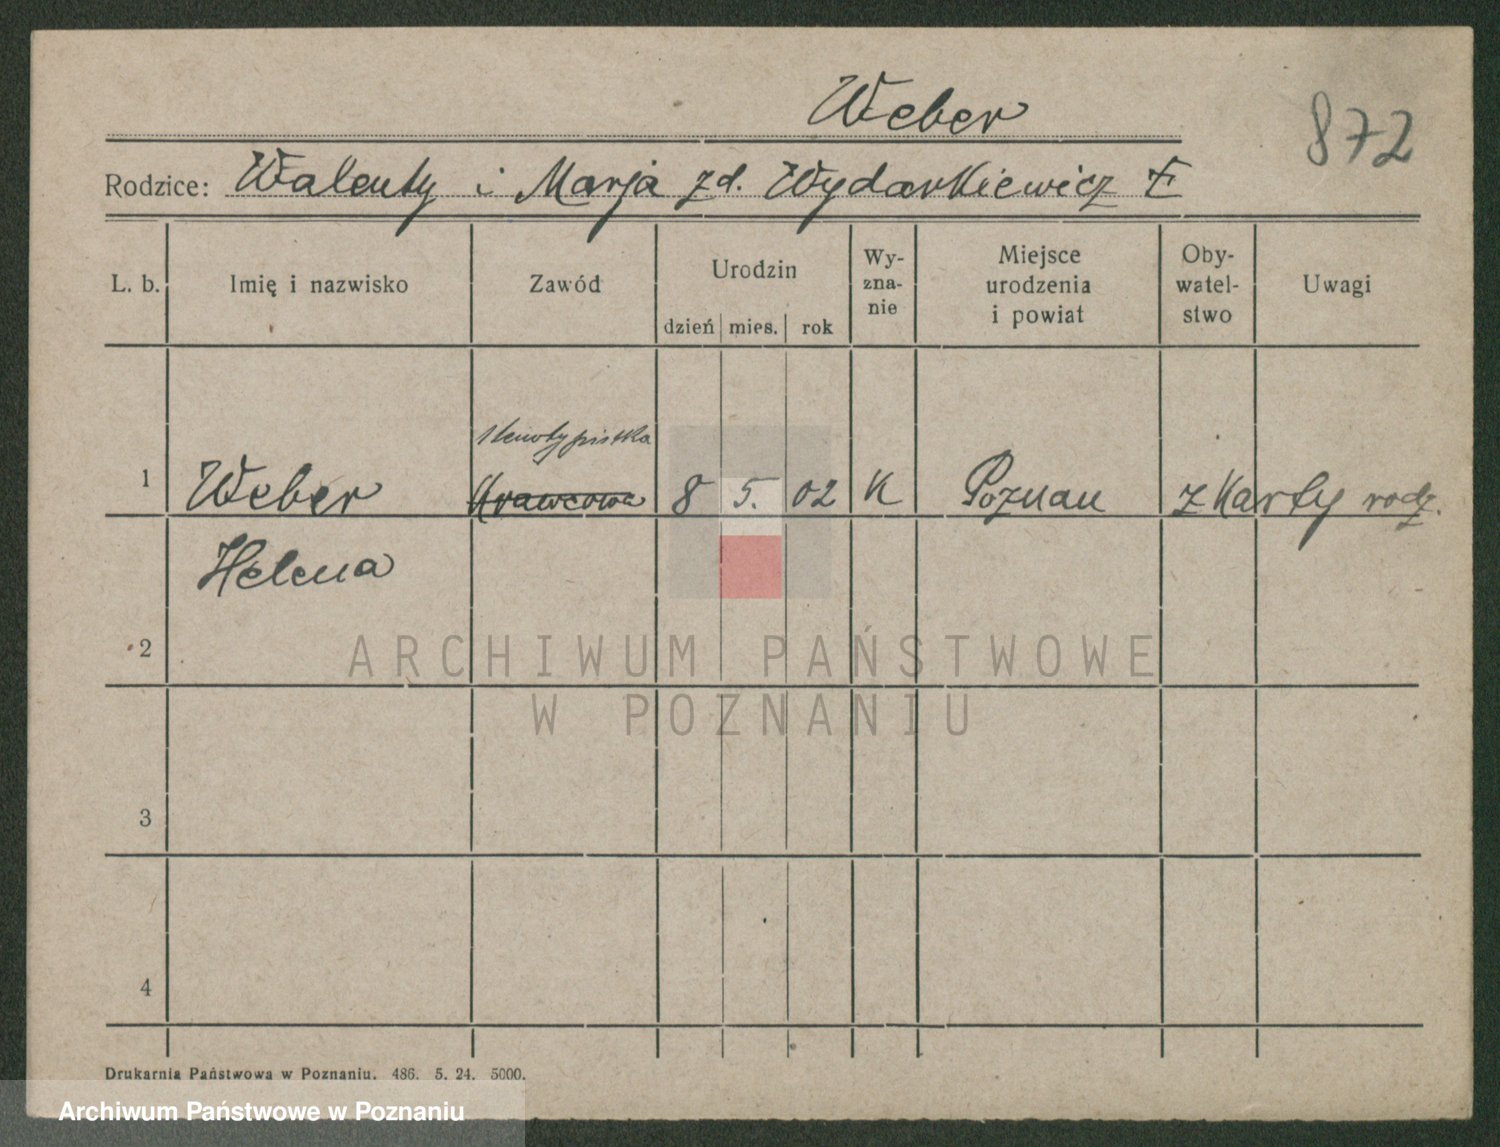 Weber
872
Rodzice: Walenty i Marja zd. Wydarkiewicz
L. b. Imię i nazwisko Zawód Urodzin dzień mies. rok Wy-zna-nie Miejsce urodzenia i powiat Oby-watel-stwo Uwagi
stenotypistka
1 Weber Krawcowa 8 5. 02 K Poznań z Karty rodz.
Helena
2
3
4
ARCHIWUM PAŃSTWOWE
W POZNANIU
Drukarnia Państwowa w Poznaniu. 486. 5. 24. 5000.
Archiwum Państwowe w Poznaniu